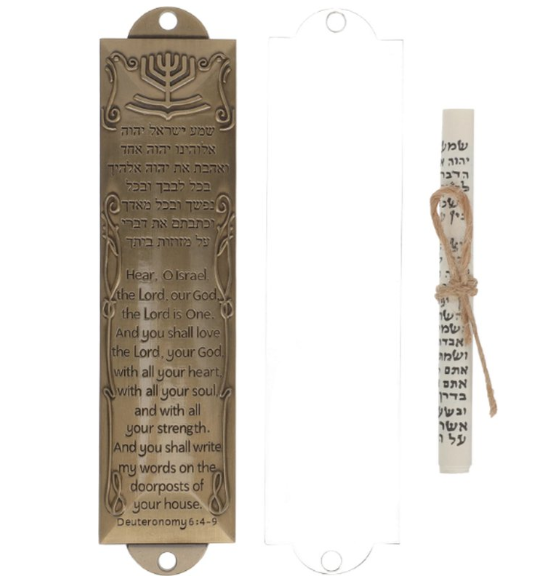 שמע ישראל יהוה
אלוהינו יהוה אחד
ואהבת את יהוה אלהיך
בכל לבבך ובכל
נפשך ובכל מאדך
וכתבתם את דברי
על מזוזות ביתך
Hear, O Israel,
the Lord, our God,
the Lord is One.
And you shall love
the Lord, your God,
with all your heart,
with all your soul,
and with all
your strength.
And you shall write
my words on the
doorposts of
your house.
Deuteronomy 6:4-9
שמע
יהוה
אתם
אתם
אשר
על